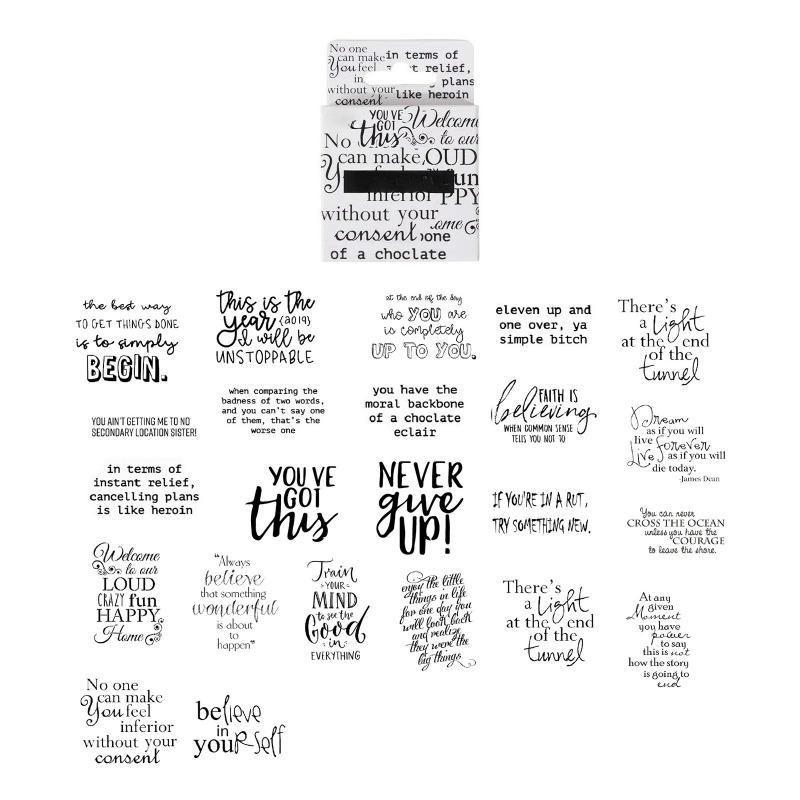 No one
can make
You feel
in
without your
consent
in terms of
relief,
plans
like heroin
YOU'VE
GOT
this
Welcome
to our
No
can make
LOUD
inferior
without your
consent
of a choclate
the best way
TO GET THINGS DONE
is to simply
BEGIN.
this is the
year {2019}
I will be
UNSTOPPABLE
at the end of the day
who YOU are
is completely
UP TO YOU.
eleven up and
one over, ya
simple bitch
There's
a Light
at the end
of the
tunnel
YOU AIN'T GETTING ME TO NO
SECONDARY LOCATION SISTER!
when comparing the
badness of two words,
and you can't say one
of them, that's the
worse one
you have the
moral backbone
of a choclate
eclair
FAITH IS
believing
WHEN COMMON SENSE
TELLS YOU NOT TO
Dream
as if you will
live forever
Live as if you will
die today.
-James Dean
in terms of
instant relief,
cancelling plans
is like heroin
YOU'VE
GOT
this
NEVER
give
UP!
IF YOU'RE IN A RUT,
TRY SOMETHING NEW.
You can never
CROSS THE OCEAN
unless you have the
COURAGE
to leave the shore.
Welcome
to our
LOUD
CRAZY fun
HAPPY
Home
"Always
believe
that something
wonderful
is about
to
happen"
Train
YOUR
MIND
to see the
Good
in
EVERYTHING
enjoy the little
things in life
for one day you
will look back
and realize
they were the
big things
There's
a Light
at the end
of the
tunnel
At any
given
Moment
you have
power
to say
this is not
how the story
is going to
end
No one
can make
You feel
inferior
without your
consent
believe
in
yourself